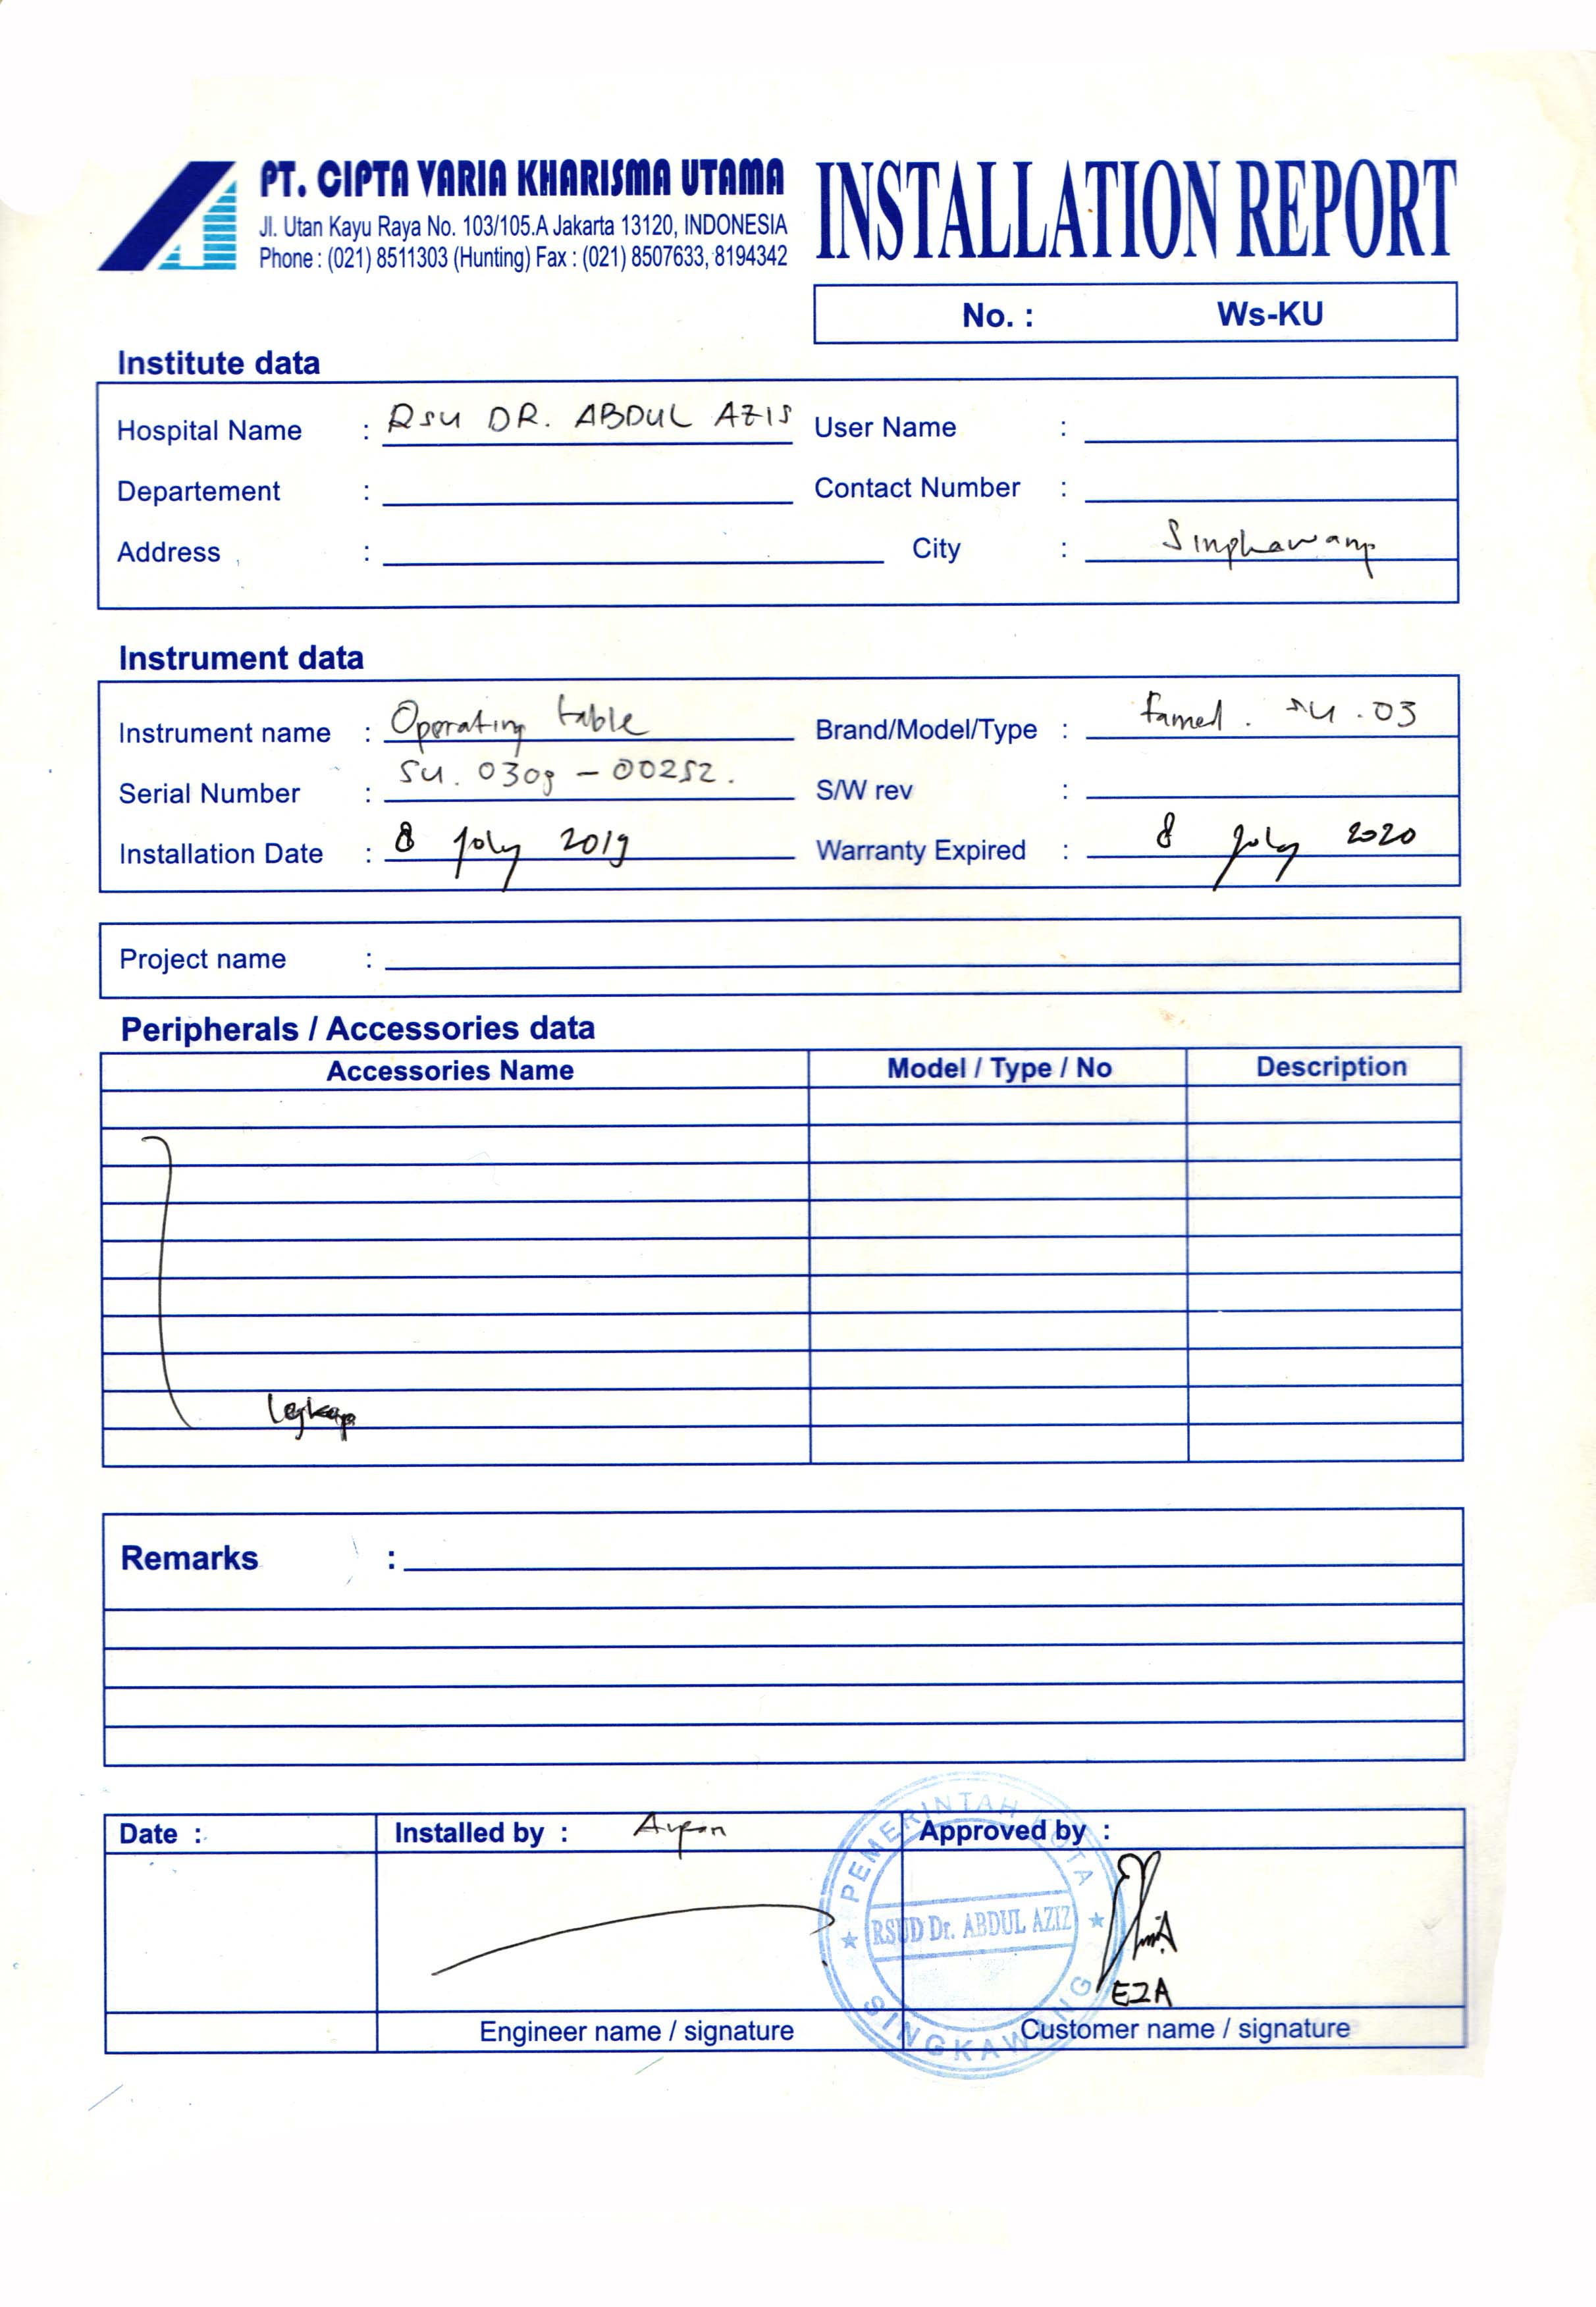 PT. CIPTA VARIA KHARISMA UTAMA
Jl. Utan Kayu Raya No. 103/105.A Jakarta 13120, INDONESIA
Phone : (021) 8511303 (Hunting) Fax : (021) 8507633, 8194342
INSTALLATION REPORT
No. : Ws-KU
Institute data
Hospital Name : RSU DR. ABDUL AZIS User Name :
Departement : Contact Number :
Address : City : Singkawang
Instrument data
Instrument name : Operating table Brand/Model/Type : famed . SU . 03
Serial Number : SU. 030g - 00252. S/W rev :
Installation Date : 8 July 2019 Warranty Expired : 8 July 2020
Project name :
Peripherals / Accessories data
Accessories Name Model / Type / No Description
Remarks :
Date : Installed by : Approved by :
PEMERINTAH KOTA
RSUD Dr. ABDUL AZIZ
SINGKAWANG
EZA
Engineer name / signature Customer name / signature